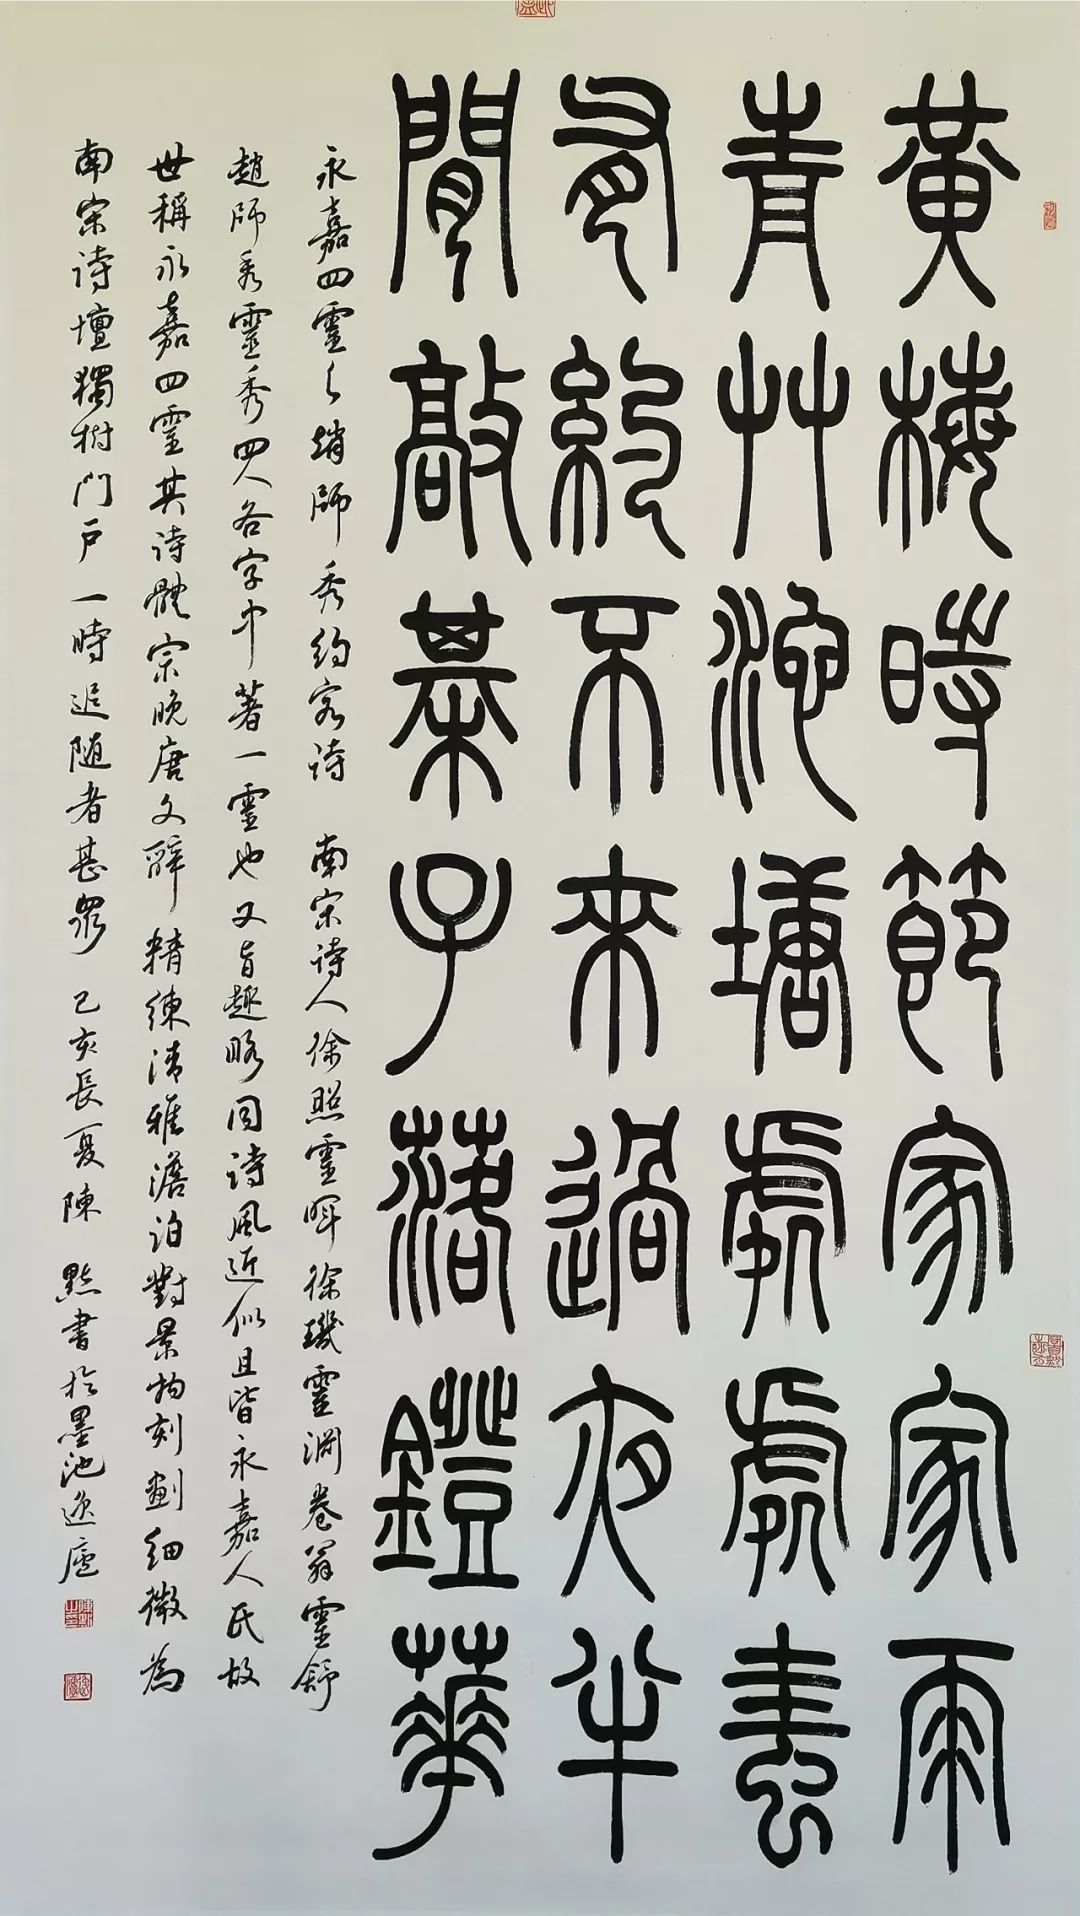 黃梅時節家家雨
青艸池塘處處蛙
有約不來過夜半
閒敲棊子落鐙華
永嘉四靈之趙師秀約客詩 南宋詩人徐照靈暉徐璣靈淵卷翁靈舒
趙師秀靈秀四人各字中著一靈也又旨趣略同詩風近似且皆永嘉人氏故
世稱永嘉四靈其詩體宗晚唐文辭精練清雅澹泊對景物刻劃細微為
南宋詩壇獨樹門戶一時追隨者甚眾 己亥長夏陳 點書於墨池逸廬